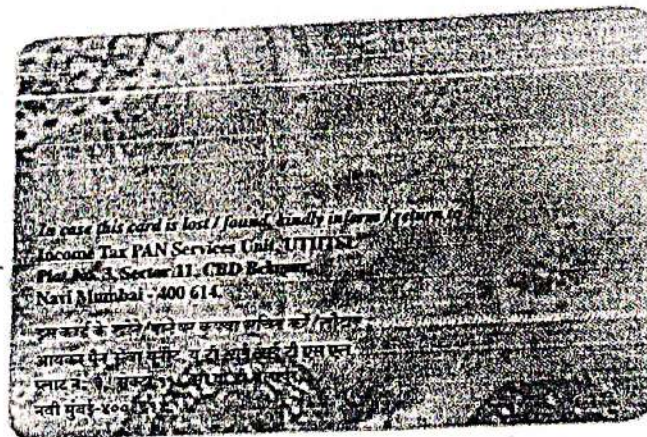 In case this card is lost / found, kindly inform / return to :
Income Tax PAN Services Unit, UTITSL
Plot No. 3, Sector 11, CBD Belapur,
Navi Mumbai - 400 614.
इस कार्ड के खोने/पाने पर कृपया सूचित करें/लौटाए
आयकर पैन सेवा यूनीट, यु टी आई टी एस एल
प्लाट नं. ३, सेक्टर ११,
नवी मुंबई-४००